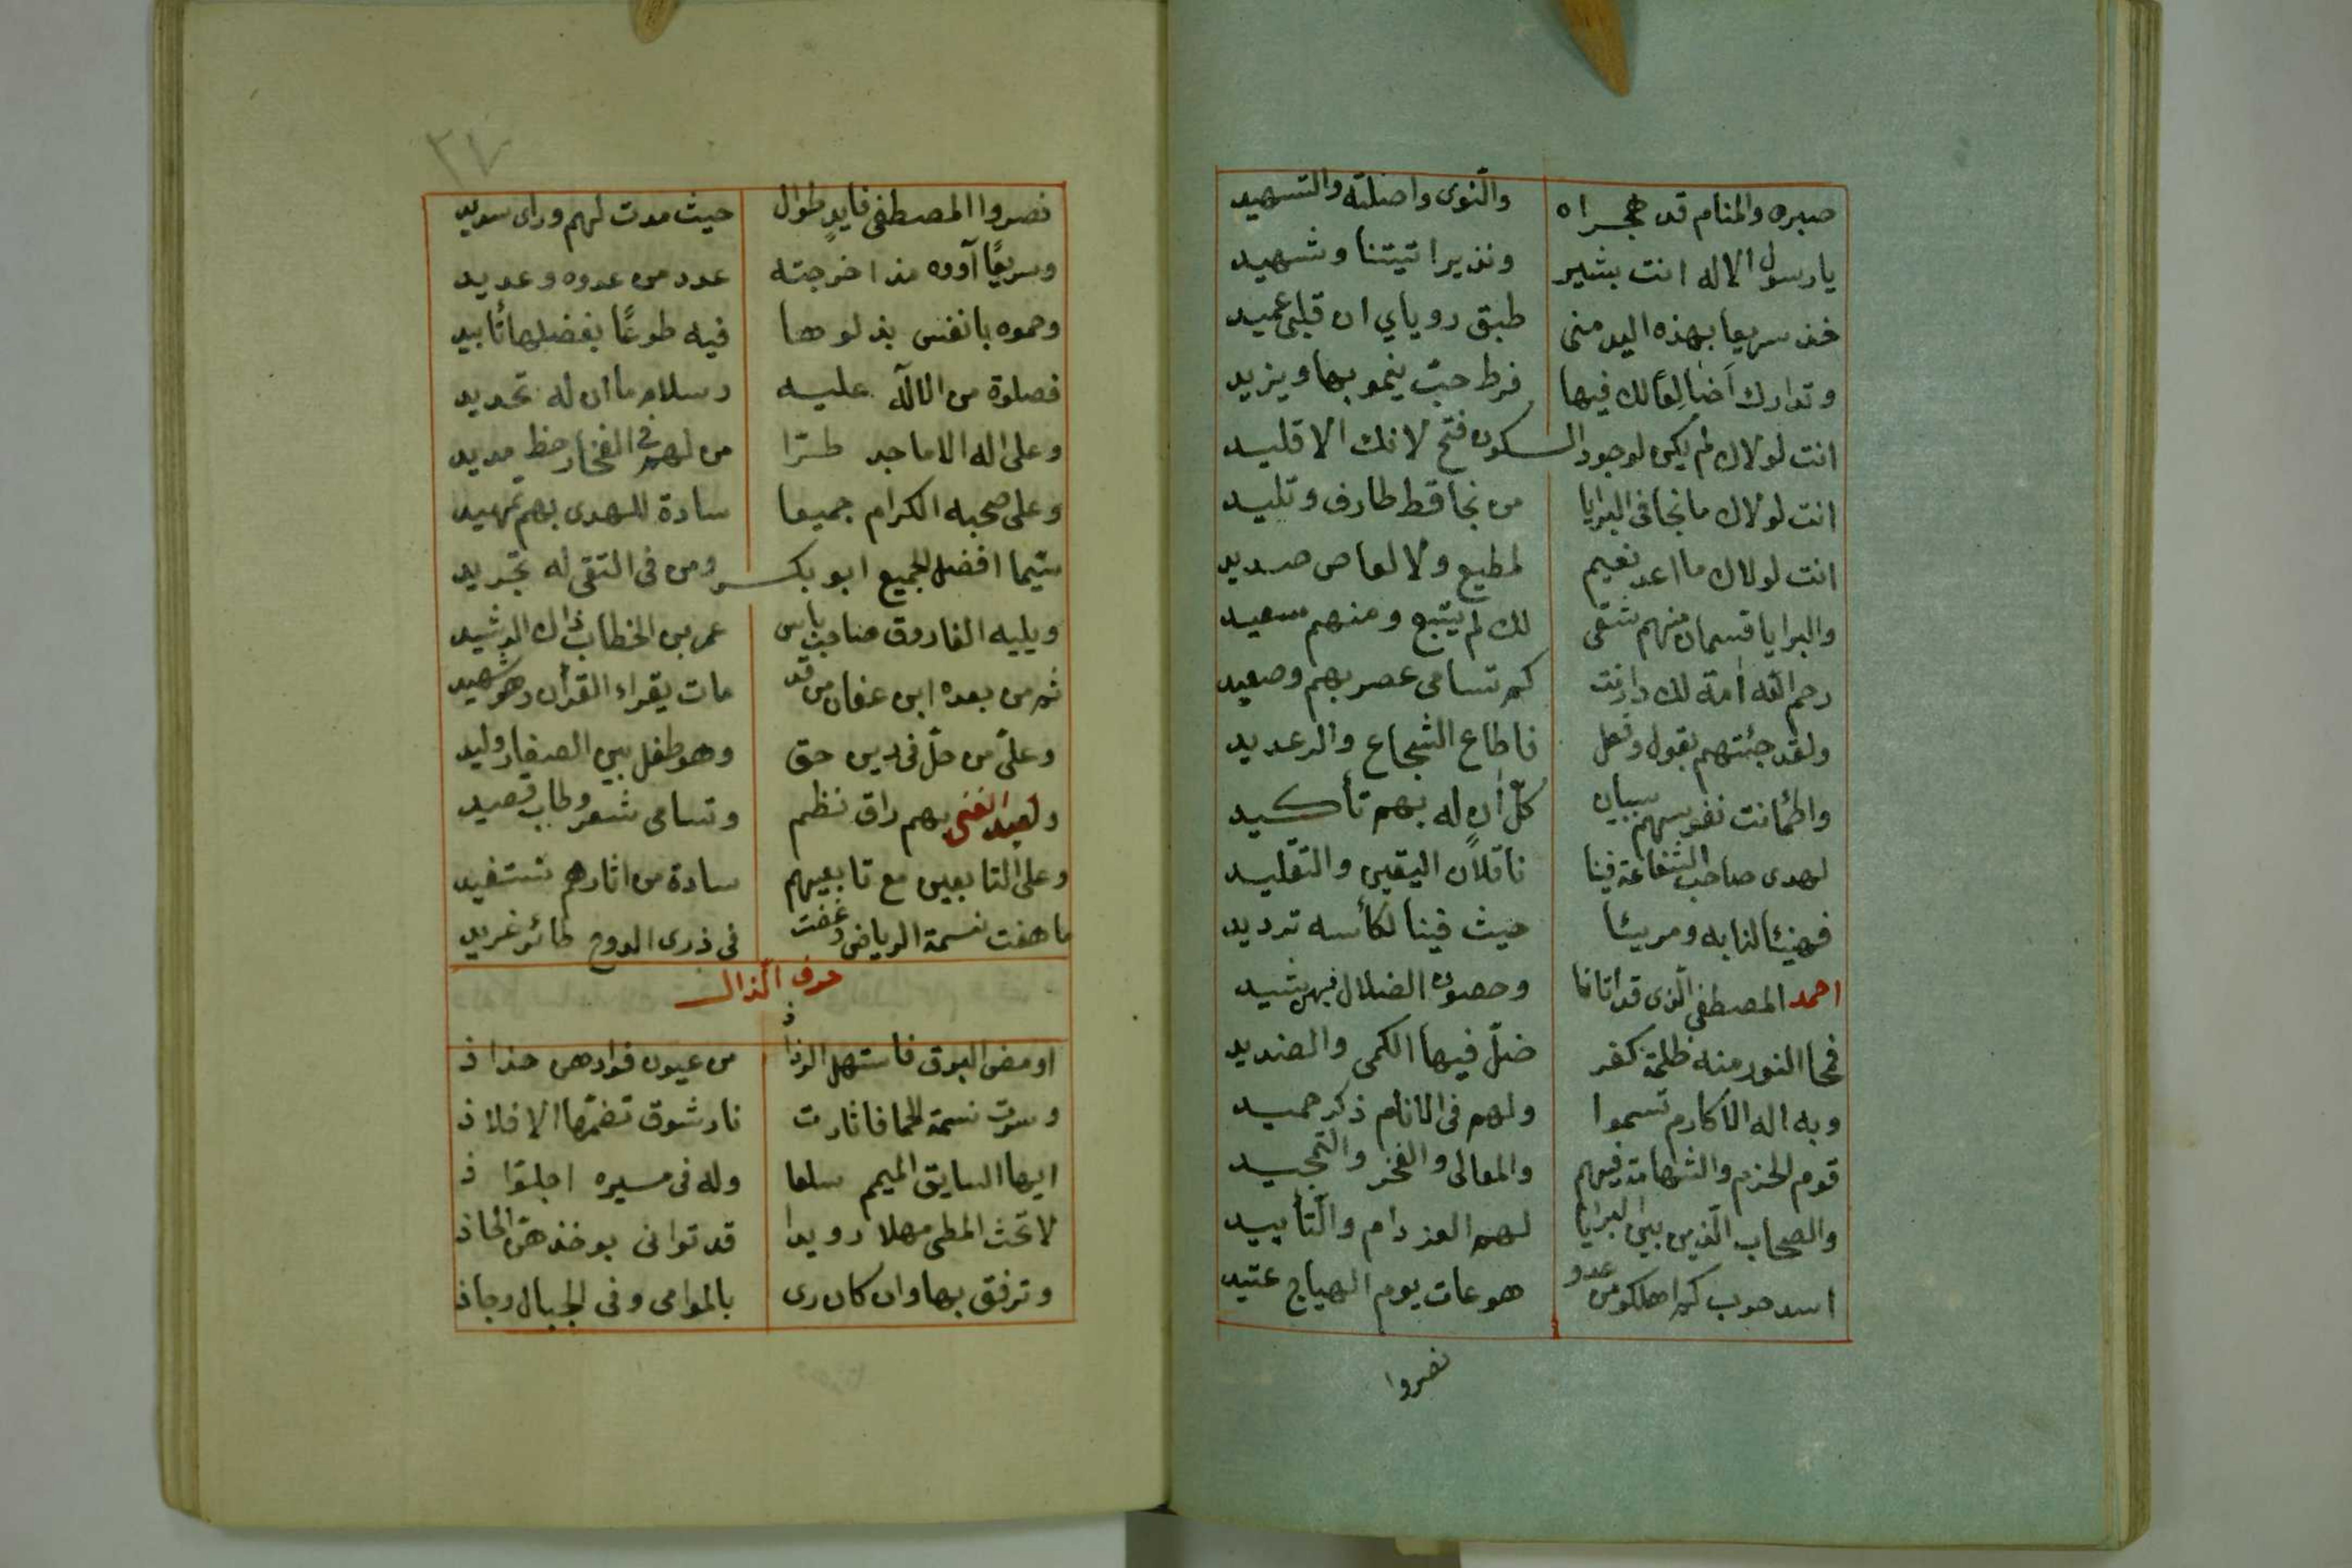 صبره والمنام قد هجراه والنوى واصلته والتسهيد
يا رسول الاله انت بشير ونذير اتيتنا وشهيد
خذ سريعا بهذه اليد مني طبق روياي ان قلبي عميد
وتدارك اضالعا لك فيها فرط حبّ ينمو بها ويزيد
انت لولاك لم يكن لوجود السكون فتح لانك الاقليد
انت لولاك ما نجا في البرايا من نجا قط طارف وتليد
انت لولاك ما اعد نعيم لمطيع ولا لعاص صديد
والبرايا قسمان منهم شقي لك لم يتبع ومنهم سعيد
رحم الله امة لك دانت كم تسامى عصر بهم وصعيد
ولقد جئتهم بقول وفعل فاطاع الشجاع والرعديد
واطمأنت نفوسهم ببيان كلّ اٰن له بهم تأكيد
لهدى صاحب الشفاعة فينا ناقلان اليقين والتقليد
فهنيئا لنا به ومريئا حيث فينا لكأسه ترديد
احمد المصطفى الذي قد اتانا وحصون الضلال فيهن شيد
فمحا النور منه ظلمة كفر ضلّ فيها الكمى والصنديد
وبه اله الاكارم تسموا ولهم في الانام ذكر حميد
قوم الحزم والشهامة فيهم والمعالى والفخر والتمجيد
والصحاب الذين بين البرايا لهم العز دام والتأييد
اسد حرب كم اهلكو من عدو هو عات يوم الهياج عتيد
نصروا
٢٧
نصروا المصطفى فايدٍ طوال حيث مدت لهم وراى سديد
وسريعًا آووه مذ اخرجته عدد من عدوه وعديد
وحموه بانفس بذلوها فيه طوعًا بفضلها تأبيد
فصلوة من الالٰه عليه وسلام ما ان له تحديد
وعلى اله الاماجد طرّا من لهم في الفخار حظ مديد
وعلى صحبه الكرام جميعا سادة للهدى بهم تمهيد
سيّما افضل الجميع ابو بكر ومن في التقى له تجريد
ويليه الفاروق صاحب باس عمر بن الخطاب ذاك الرشيد
ثم من بعده ابن عفان من قد مات يقراء القرأن وهو شهيد
وعلىّ من حلّ في دين حق وهو طفل بين الصغار وليد
ولعبد الغنى بهم راق نظم وتسامى شعر وطاب قصيد
وعلى التابعين مع تابعيهم سادة من اثارهم نستفيد
ما هفت نسمة الرياض وغنت في ذرى الدوح طائر غريد
حرف الذال
اومض البرق فاستهل الرذاذ من عيون فوادهن جذاذ
وسرت نسمة الحما فاثارت نار شوق تضمّها الافلاذ
ايها السايق الميمم سلعا وله في مسيره اجلوّاذ
لا تحث المطى مهلا رويدا قد توانى بوخذهنّ الحاذ
وترفق بها وان كان رى بالموامى وفي الجبال وجاذ